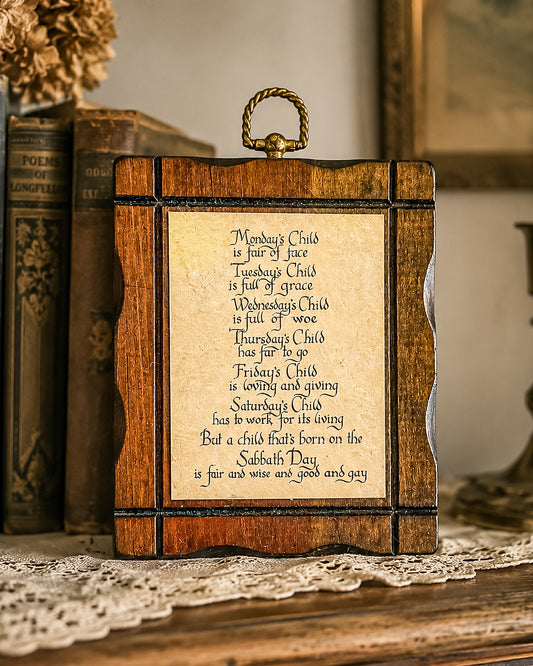 POEMS
OF
LONGFELLOW
Monday's Child
is fair of face
Tuesday's Child
is full of grace
Wednesday's Child
is full of woe
Thursday's Child
has far to go
Friday's Child
is loving and giving
Saturday's Child
has to work for its living
But a child that's born on the
Sabbath Day
is fair and wise and good and gay